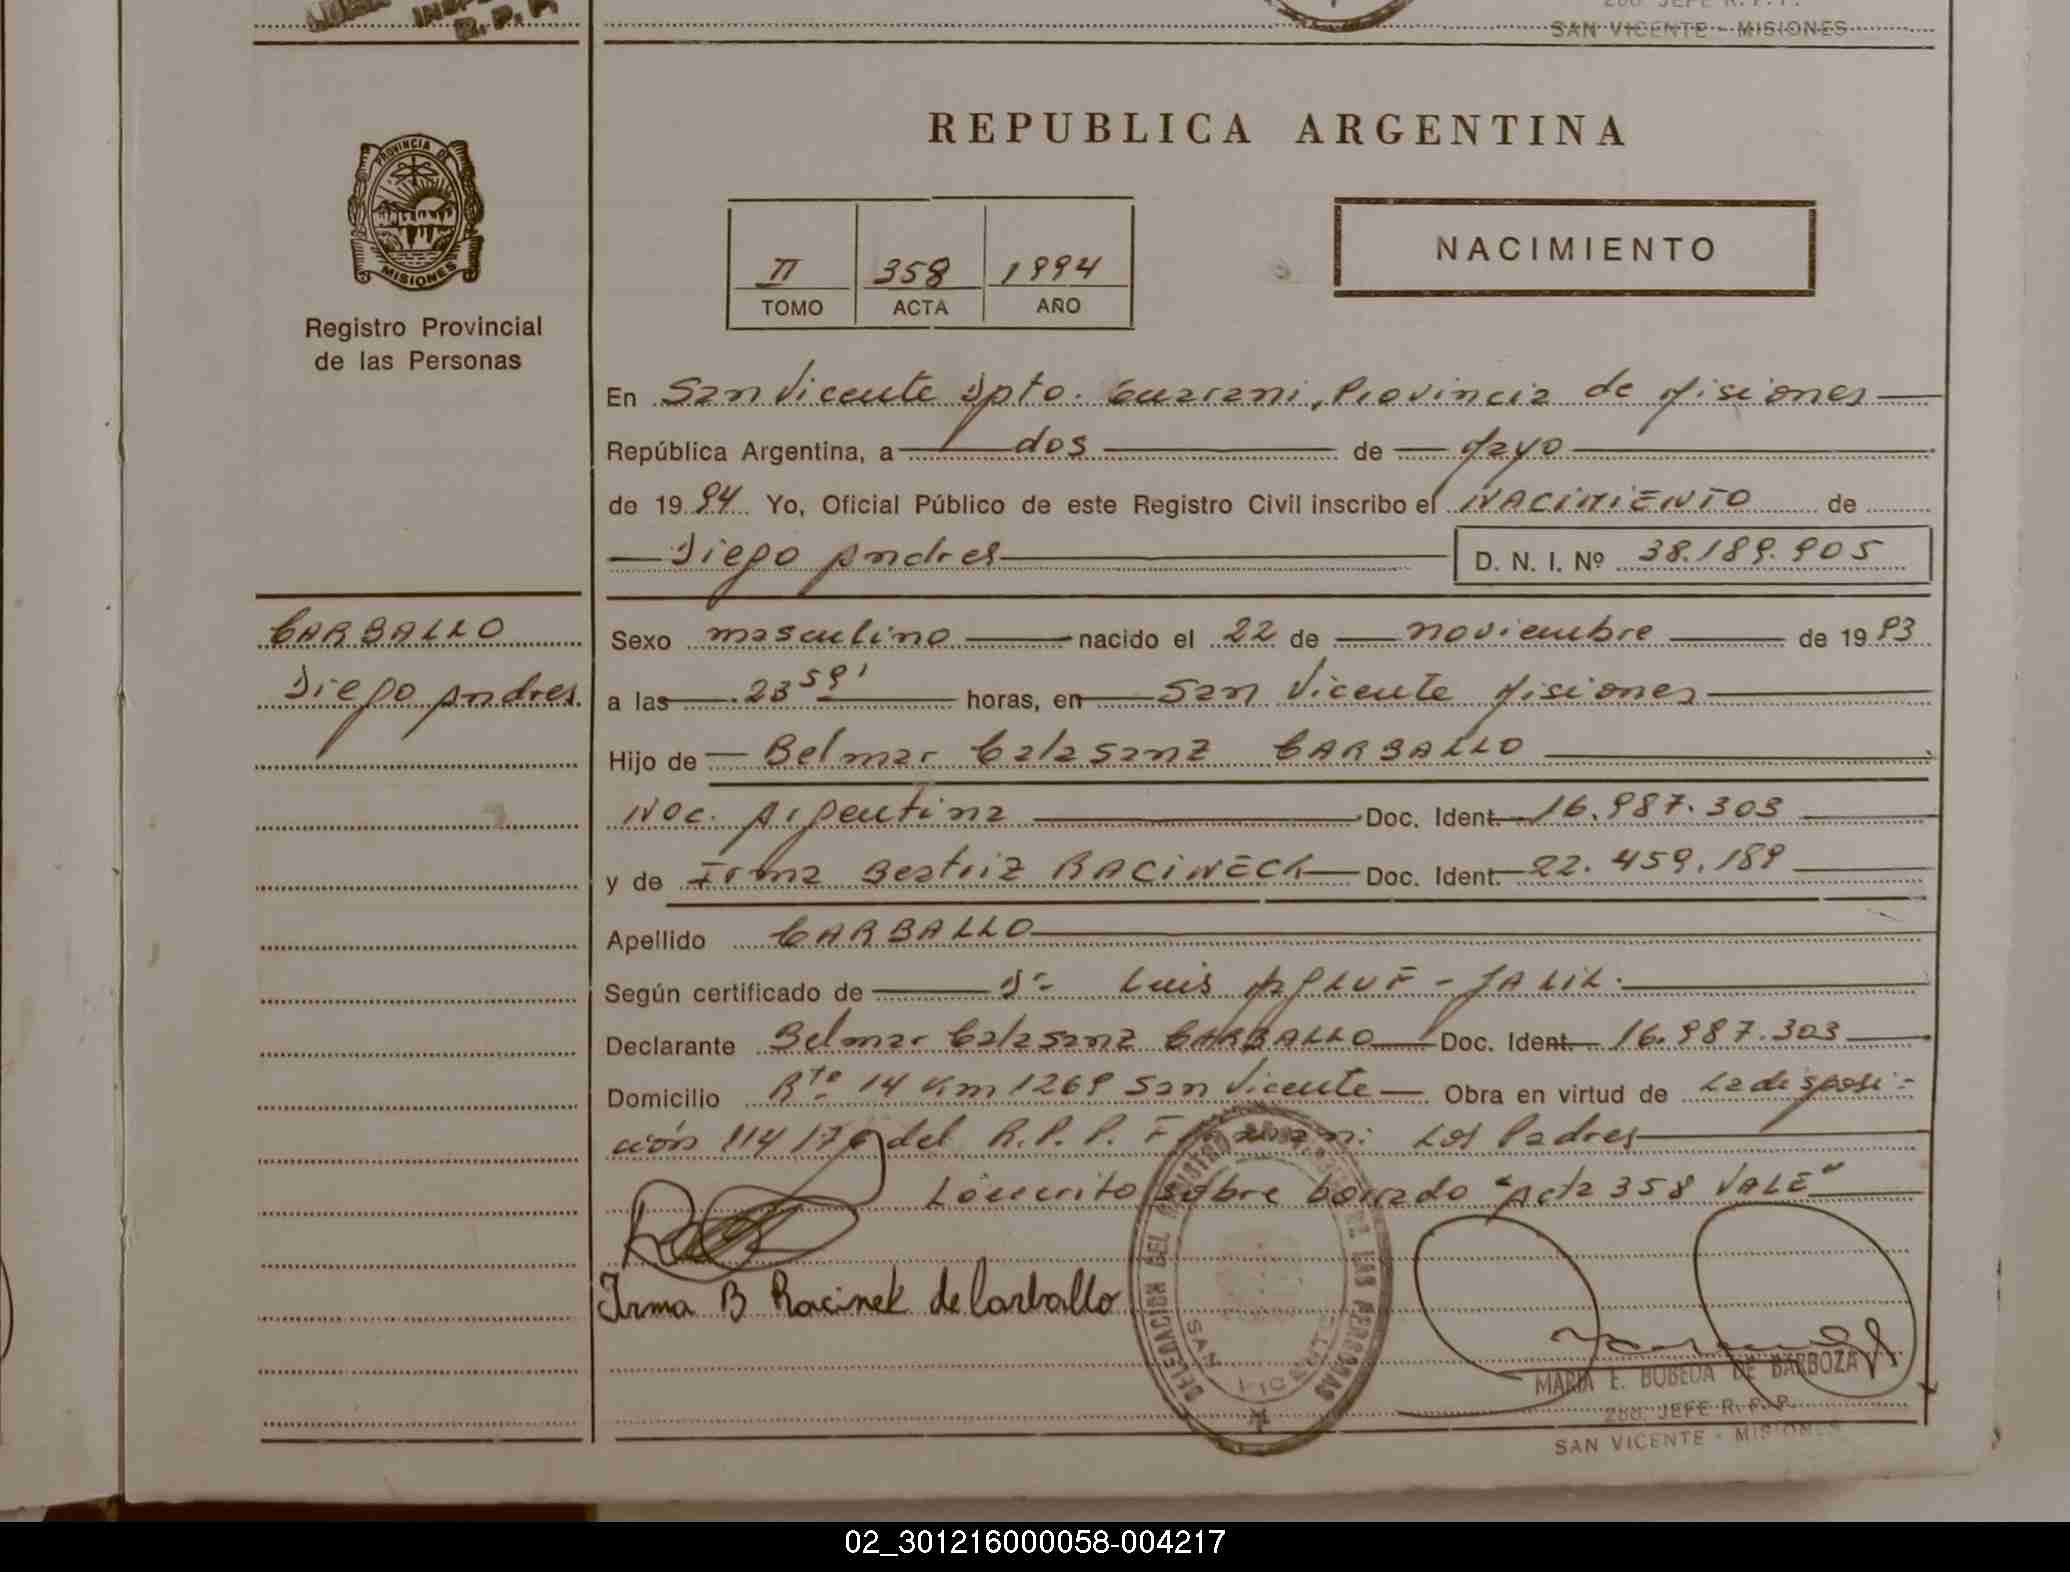 R.P.P.
SAN VICENTE - MISIONES
REPUBLICA ARGENTINA
PROVINCIA DE
MISIONES
Registro Provincial
de las Personas
II 358 1994
TOMO ACTA AÑO
NACIMIENTO
En San Vicente Dpto. Guarani, Provincia de Misiones
República Argentina, a dos de Mayo
de 1994 Yo, Oficial Público de este Registro Civil inscribo el NACIMIENTO de
Diego Andres D. N. I. Nº 38.189.905
CARBALLO
Diego Andres
Sexo masculino nacido el 22 de noviembre de 1993
a las 23 59' horas, en San Vicente Misiones
Hijo de Belmar Calasanz CARBALLO
Nac. Argentina Doc. Ident. 16.987.303
y de Irma Beatriz RACINECK Doc. Ident. 22.459.189
Apellido CARBALLO
Según certificado de Dr Luis AGLUF - JALIL.
Declarante Belmar Calasanz CARBALLO Doc. Ident. 16.987.303
Domicilio Rta 14 Km 1269 San Vicente Obra en virtud de La disposi-
ción 114/76 del R.P.P. Firman: Los Padres
Lo escrito sobre borrado "Acta 358 VALE"
Irma B Racinek de Carballo
DELEGACION DEL REGISTRO DE LAS PERSONAS
SAN VICENTE
MARIA E. BOBEDA DE BARBOZA
JEFE R. P. P.
SAN VICENTE - MISIONES
02_301216000058-004217